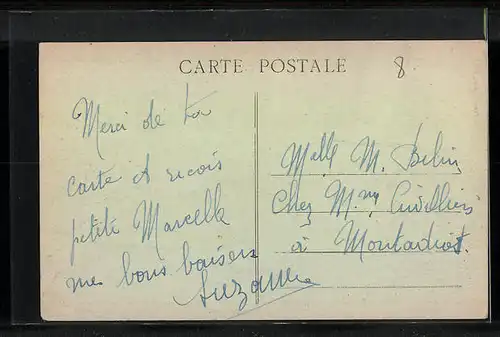 CARTE POSTALE
8
Merci de ta
carte et reçois
petite Marcelle
mes bons baisers
Suzanne
Melle M. Belin
Chez Mme
à